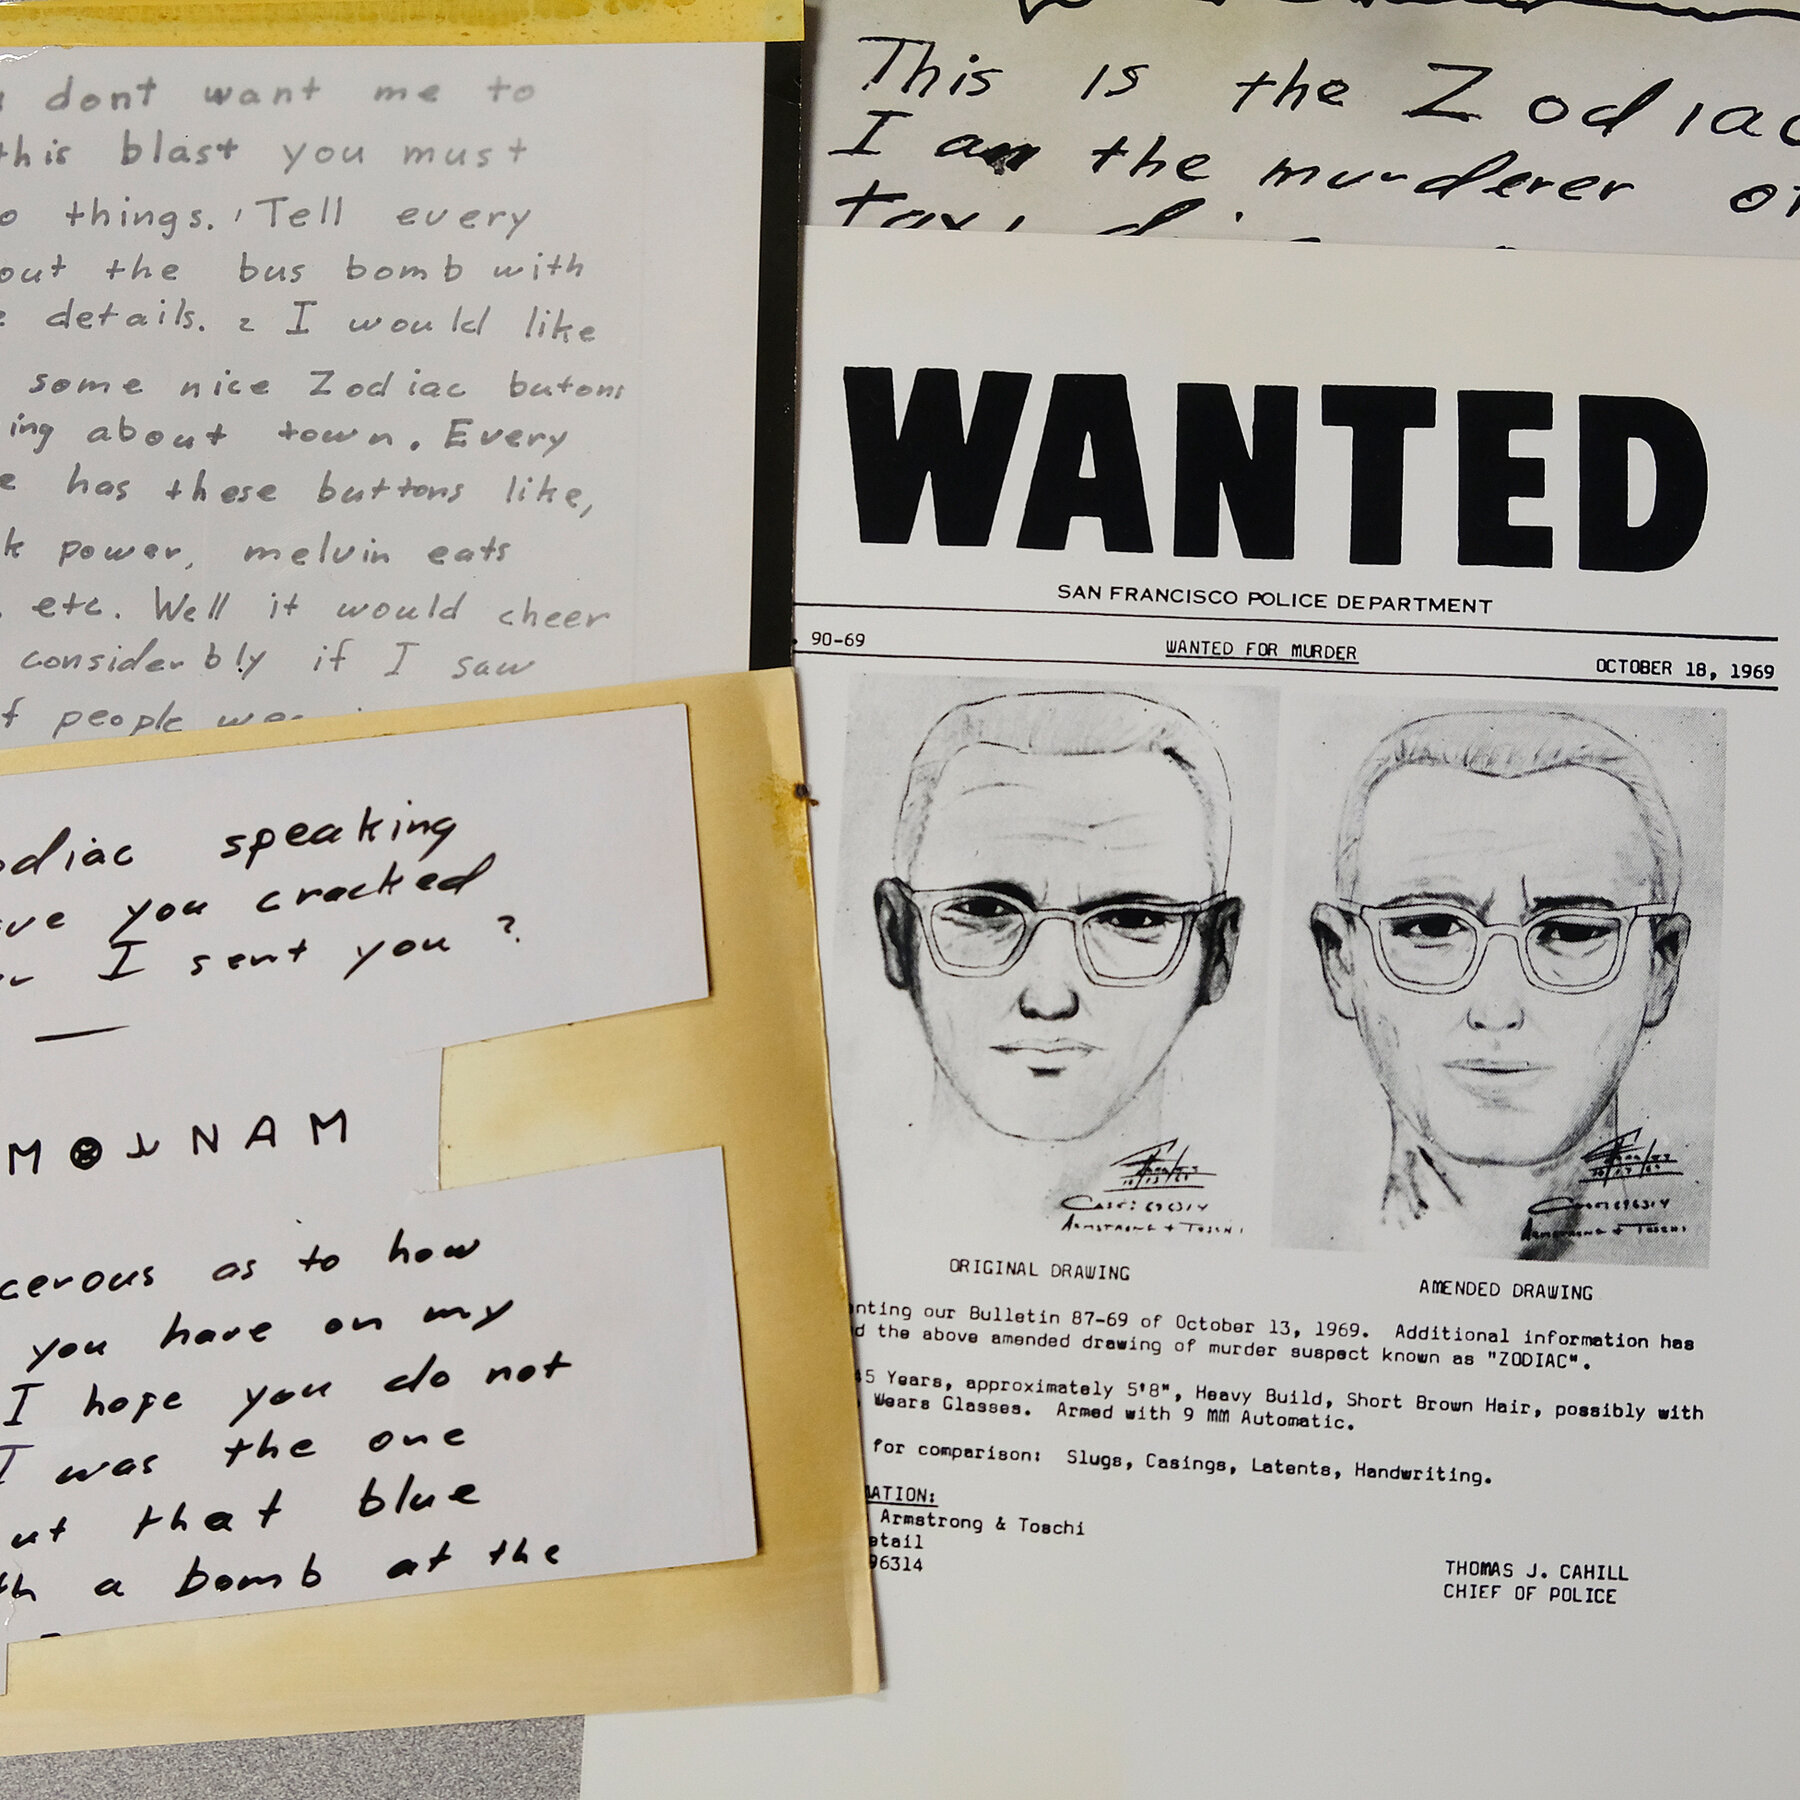 dont want me to
this blast you must
things. 1 Tell every
out the bus bomb with
details. 2 I would like
some nice Zodiac butons
ing about town. Every
e has these buttons like,
k power, melvin eats
etc. Well it would cheer
considerbly if I saw
f people
odiac speaking
ve you cracked
I sent you ?
NAM
cerous as to how
you have on my
I hope you do not
I was the one
ut that blue
th a bomb at the
This is the Zodiac
I am the murderer of
WANTED
SAN FRANCISCO POLICE DEPARTMENT
90-69 WANTED FOR MURDER OCTOBER 18, 1969
Case: 696314
Armstrong + Toschi
Case: 696314
Armstrong + Toschi
ORIGINAL DRAWING AMENDED DRAWING
nting our Bulletin 87-69 of October 13, 1969. Additional information has
d the above amended drawing of murder suspect known as "ZODIAC".
45 Years, approximately 5'8", Heavy Build, Short Brown Hair, possibly with
Wears Glasses. Armed with 9 MM Automatic.
for comparison: Slugs, Casings, Latents, Handwriting.
MATION:
Armstrong & Toschi
etail
96314
THOMAS J. CAHILL
CHIEF OF POLICE